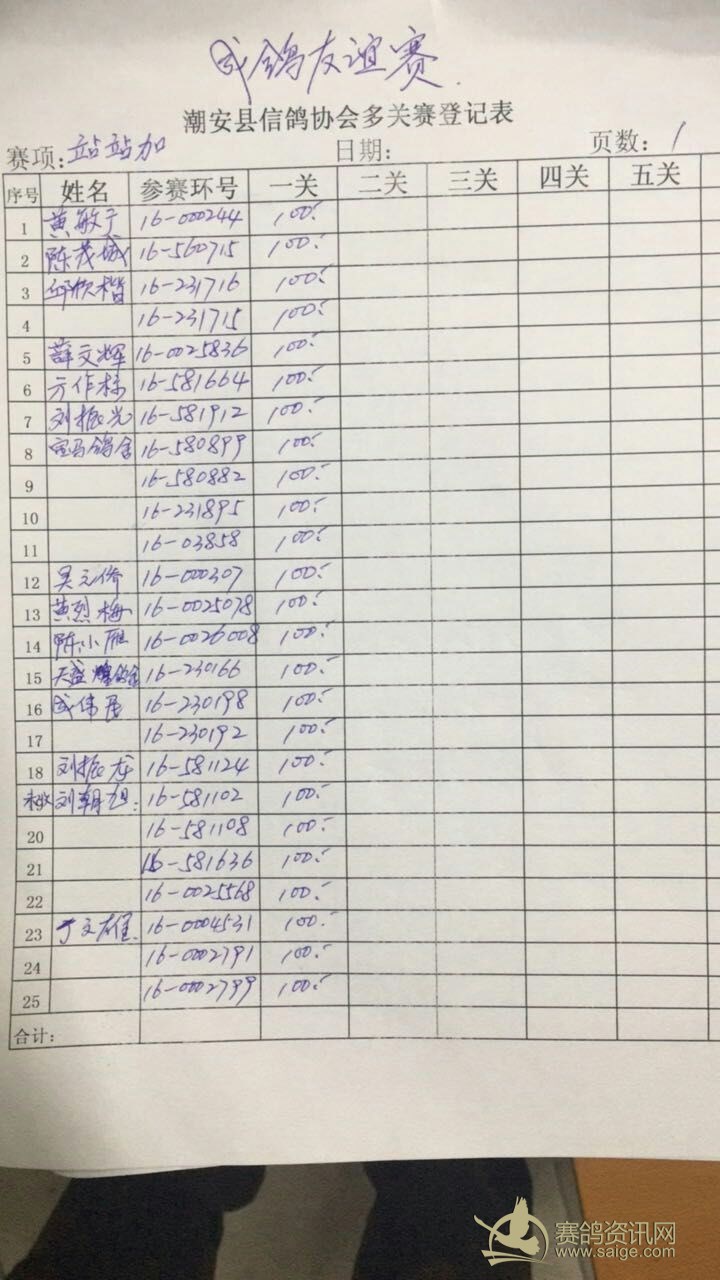 成鸽友谊赛
潮安县信鸽协会多关赛登记表
赛项:站站加 日期: 页数:1
序号 姓名 参赛环号 一关 二关 三关 四关 五关
1 黄敏于 16-000244 100.-
2 陈茂城 16-560715 100.-
3 邱欣楷 16-231716 100.-
4 16-231715 100.-
5 薛文辉 16-0025836 100.-
6 方作标 16-581664 100.-
7 刘振光 16-581912 100.-
8 宝马鸽舍 16-580899 100.-
9 16-580882 100.-
10 16-231895 100.-
11 16-03858 100.-
12 吴元侨 16-000307 100.-
13 黄烈梅 16-0025078 100.-
14 陈小雁 16-0026008 100.-
15 天盛 16-230166 100.-
16 成伟 16-230198 100.-
17 16-230192 100.-
18 刘振龙 16-581124 100.-
刘朝旭: 16-581102 100.-
20 16-581108 100.-
21 16-581636 100.-
22 16-0025568 100.-
23 丁文雄. 16-0004531 100.-
24 16-0002791 100.-
25 16-0002799 100.-
合计:
赛鸽资讯网
www.saige.com